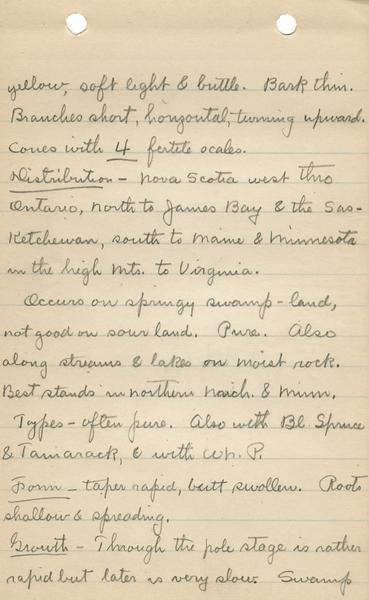 yellow, soft light & brittle. Bark thin.
Branches short, horizontal, turning upward.
Cones with 4 fertile scales.
Distribution - Nova Scotia west thro
Ontario, north to James Bay & the Sas-
ketchewan, south to Maine & Minnesota
in the high Mts. to Virginia.
Occurs on springy swamp-land,
not good on sour land. Pure. Also
along streams & lakes on moist rock.
Best stands in northern Mich. & Minn.
Types - often pure. Also with Bl. Spruce
& Tamarack, & with Wh. P.
Form - taper rapid, butt swollen. Roots
shallow & spreading.
Growth - Through the pole stage is rather
rapid but later is very slow. Swamp